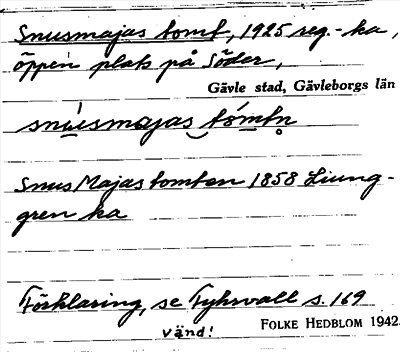 Snusmajas tomt, 1925 reg.-ka,
öppen plats på Söder,
Gävle stad, Gävleborgs län
snusmajas tómtn̥
SnusMajas tomten 1858 Ljung-
gren ka
Förklaring, se Fyhrvall s. 169
Vänd!
FOLKE HEDBLOM 1942.